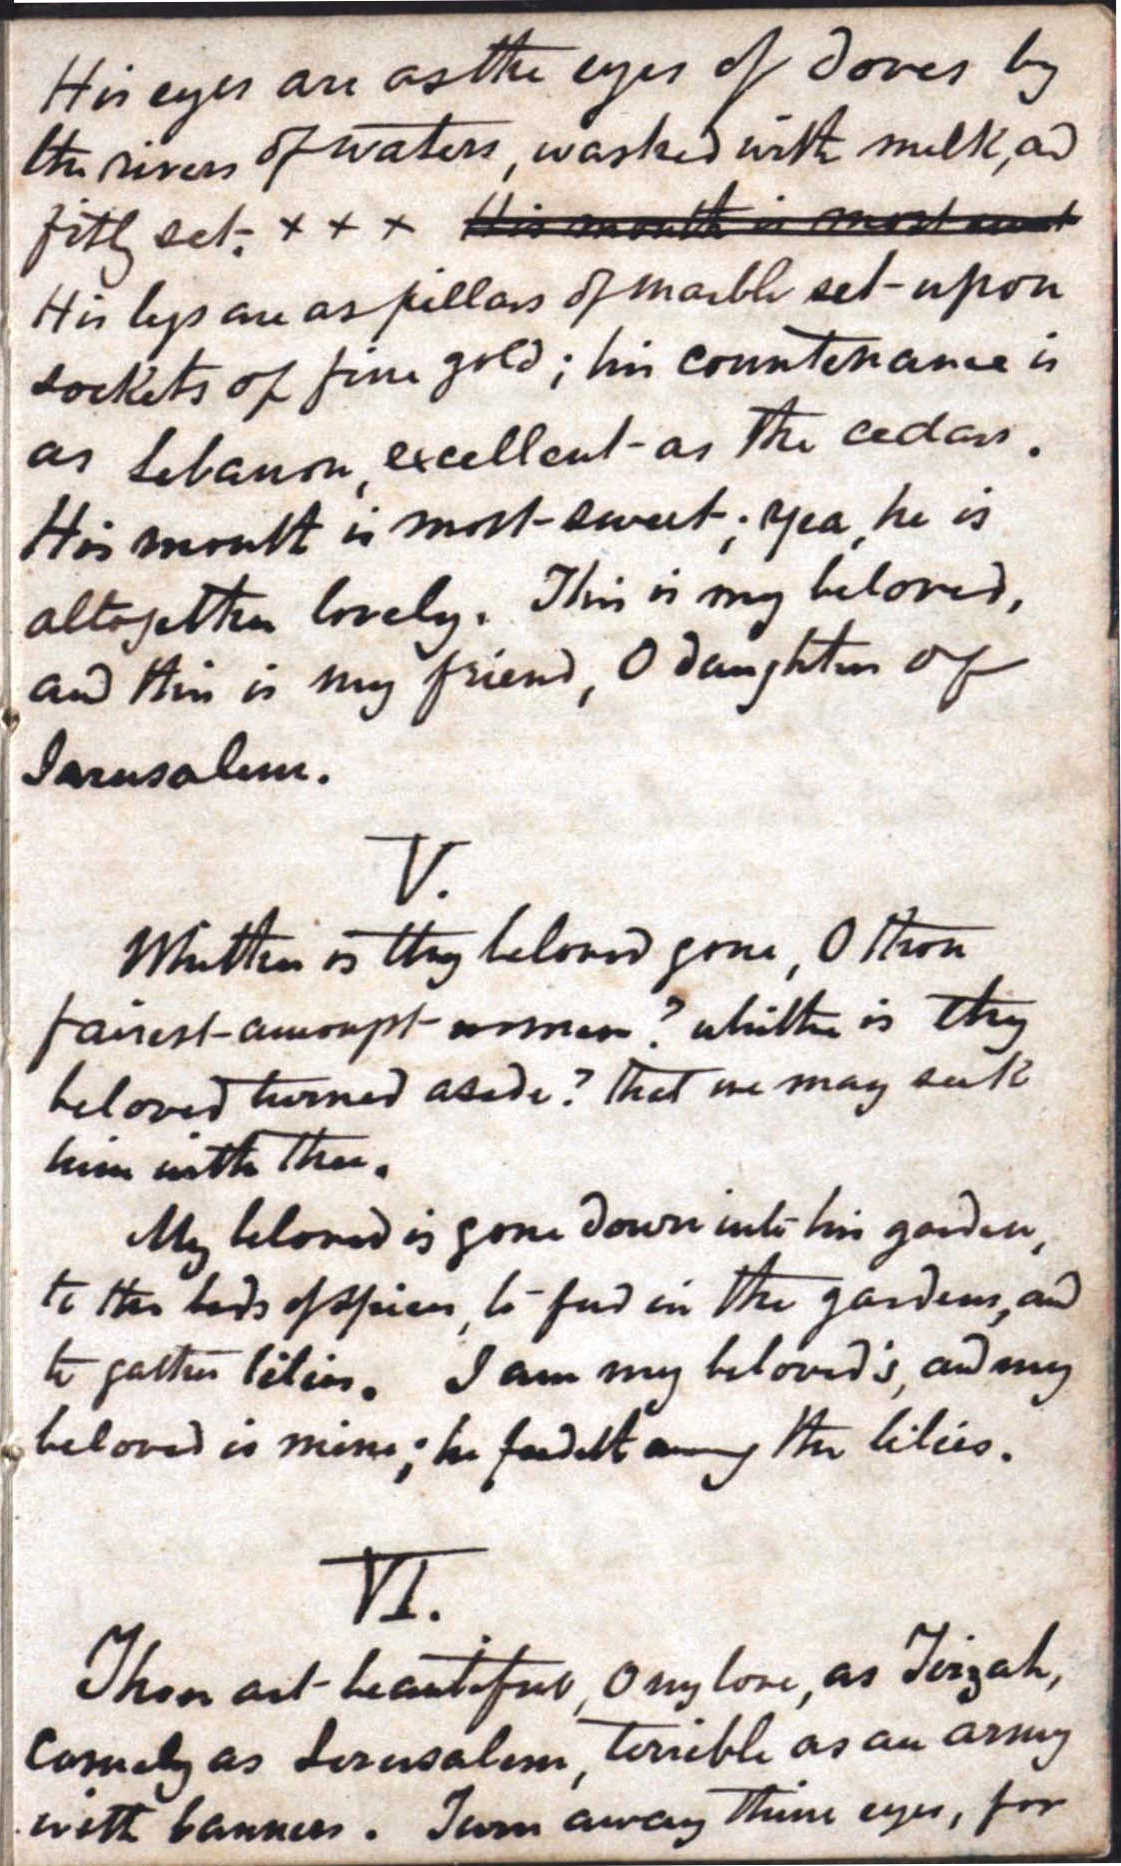 His eyes are as the eyes of doves by
the rivers of waters, washed with milk, and
fitly set. x x x His mouth is most sweet
His legs are as pillars of marble set upon
sockets of fine gold; his countenance is
as Lebanon, excellent as the cedars.
His mouth is most sweet; yea, he is
altogether lovely. This is my beloved,
and this is my friend, O daughters of
Jerusalem.
V.
Whither is thy beloved gone, O thou
fairest amongst women? whither is thy
beloved turned aside? that we may seek
him with thee.
My beloved is gone down into his garden,
to the beds of spices, to feed in the gardens, and
to gather lilies. I am my beloved's, and my
beloved is mine; he feedeth among the lilies.
VI.
Thou art beautiful, O my love, as Tirzah,
comely as Jerusalem, terrible as an army
with banners. Turn away thine eyes, for